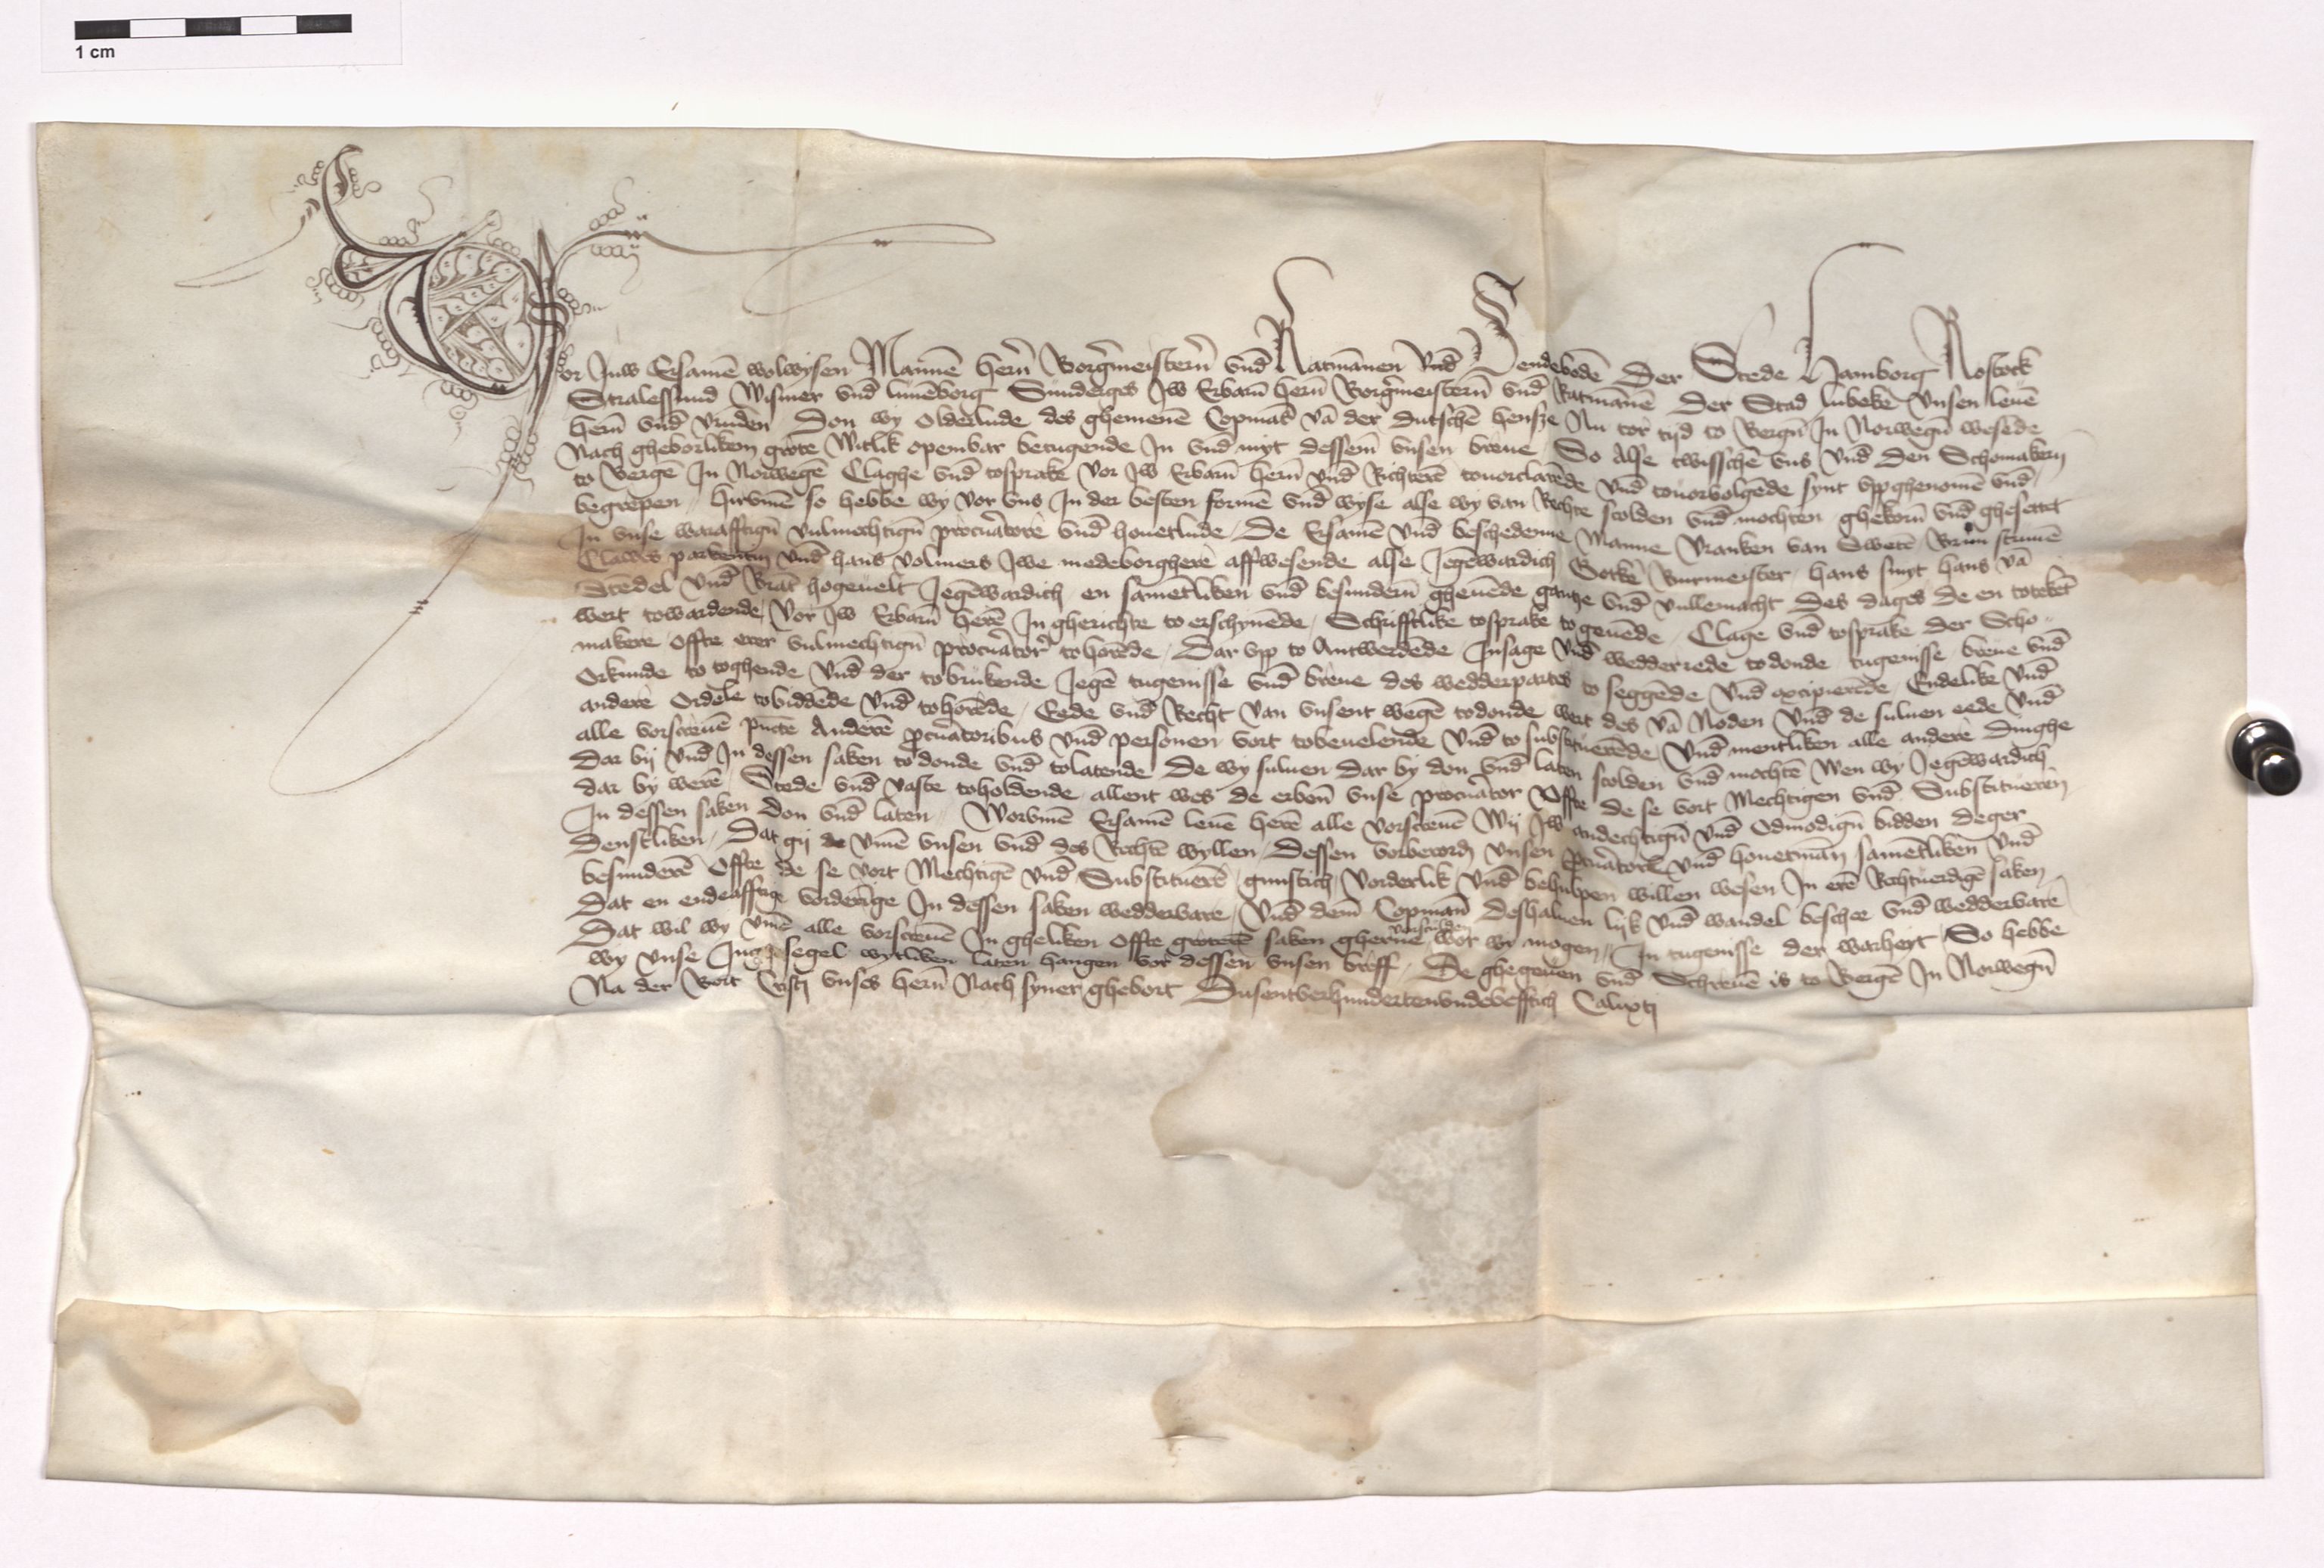 1 cm
Vor Juw Ersamē wolwysen Mannē herñ Borgermeisterñ vnd̄ Ratmānen vnd̄ Sendebodē Der Stede Hamborg Rostock
Stralessund Wismer vnd̄ lunēborg Sunderges Jw Erbarñ herñ Borgermeisterñ vnd̄ Ratmānē Der Stad lubeke vnsen leuē
herñ vnd̄ vrūden Don wy Olderlude des ghemenē Copmās vā der dutschē hensze Nu tor tijd to Bergñ Jn Norwegñ wesēde
Nach gheborlikem grote Witlik openbar betugende Jn vnd̄ myt dessem̄ vnsen breue So Alse twisschē vns vnd̄ den Schomakerñ
to Bergē Jn Norwegē Claghe vnd̄ tosprake vor Jw Erbarñ herñ vnd̄ Richterē touorclarēde vnd̄ touoruolgēde synt vppghenomē vnd̄
begrepen hirvmē so hebbe wy vor vns Jn der besten formē vnd̄ wyse alse wy van Rechte scolden vnd̄ mochten ghekorñ vnd̄ ghesettet
Jn vnse warafftigñ vulmechtigñ procuratore vnd̄ houetlude De Ersamē vnd̄ beschedenne Manne Vranken van Dwerē Brun strunē
Clawes parkentin vnd̄ hans volmers Jwe medeborgherē affwesende alse Jegēwardich Gotke Burmeister hans smyt hans vā
Stedel vnd̄ Brāt hogeuelt Jegēwardich en sametliken vnd̄ besunderñ gheuēde gantze vnd̄ vullemacht des dages de en toteket
wert towardende vor Jw Erbarñ herē Jn gherichte to erschynēde Schrifftlike tosprake to geuēde Clage vnd̄ tosprake der Scho
makere offte erer vulmechtigñ procurator tohorēde Dar vpp to Antwerdēde Jnsage vnd̄ wedderrede todonde tugenisse breue vnd̄
Orkunde to toghende vnd̄ der tobrukende Jegē tugenisse vnd̄ breue des wedderpartes to seggēde vnd̄ excipierēde Endelike vnd̄
andere Ordele tobiddēde vnd̄ tohorēde Eede vnd̄ Recht van vnsent wegē todonde wert des vā Noden vnd̄ de suluen eede vnd̄
alle vorscreuē puncte Anderē procuratoribus vnd̄ personen vort tobeuelende vnd̄ to substituerēde vnd̄ mentliken alle andere dinghe
Dar bij vnd̄ Jn dessen saken to donde vnd̄ tolatende De wy suluen dar by don vnd̄ laten scolden vnd̄ mochtē Wen wy Jegēwardich
dar by werē Stede vnd̄ vaste toholdende allent wes de erbeñ vnse procurator Offte de se vort Mechtigen vnd̄ Substituerēn
Jn dessen saken Don vnd̄ laten Worvmē Ersamē leuē herē alle vorscreuē Wij Jw andechtigñ vnd̄ Odmodigñ bidden deger
denstliken Dat gij vmē vnsen vnd̄ des Rechtē wyllen Dessen vorberord vnsen procurator vnd̄ houetmān sametliken vnd̄
besunderē Offte de se vort Mechtigē vnd̄ Substituerē gunstich vorderlik vnd̄ behulpen willen wesen Jn erē Rechtuerdigē saken
Dat en endeafftige vorderinge Jn dessen saken wedderuare vnd̄ dem̄ Copman deshaluen lijk vnd̄ wandel beschee vnd̄ wedderuare
Dat wil wy vmē alle vorscreuē Jn gheliken offte groterē saken gherne vorschulden wor wy mogen Jn tugenisse der warheyt So hebbe
wy vnse Jngesegel wytliken laten hangen vor dessen vnsen breff De ghegeuen vnd̄ Screuē is to Bergē Jn Norwegñ
Na der Bort Cristi vnses herñ Nach syner ghebort Dusentverhundertenvndevefftich Calixti